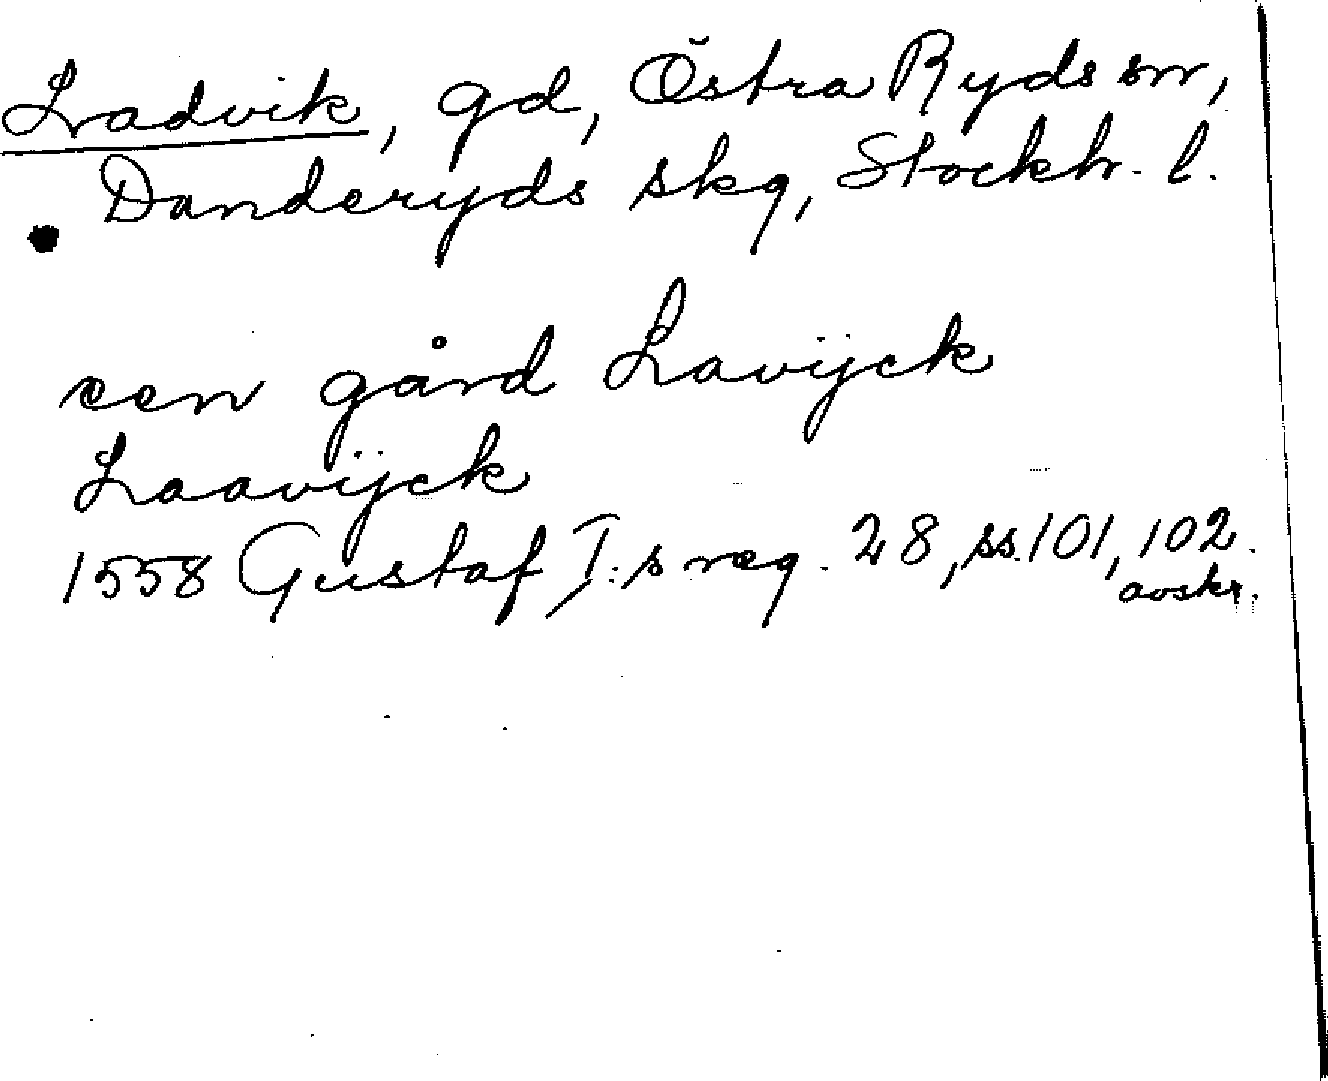 Ladvik, gd, Östra Ryds sn,
Danderyds skg, Stockh. l.
een gård Lavijck
Laavijck
1558 Gustaf I:s reg. 28, ss. 101, 102.
avskr.